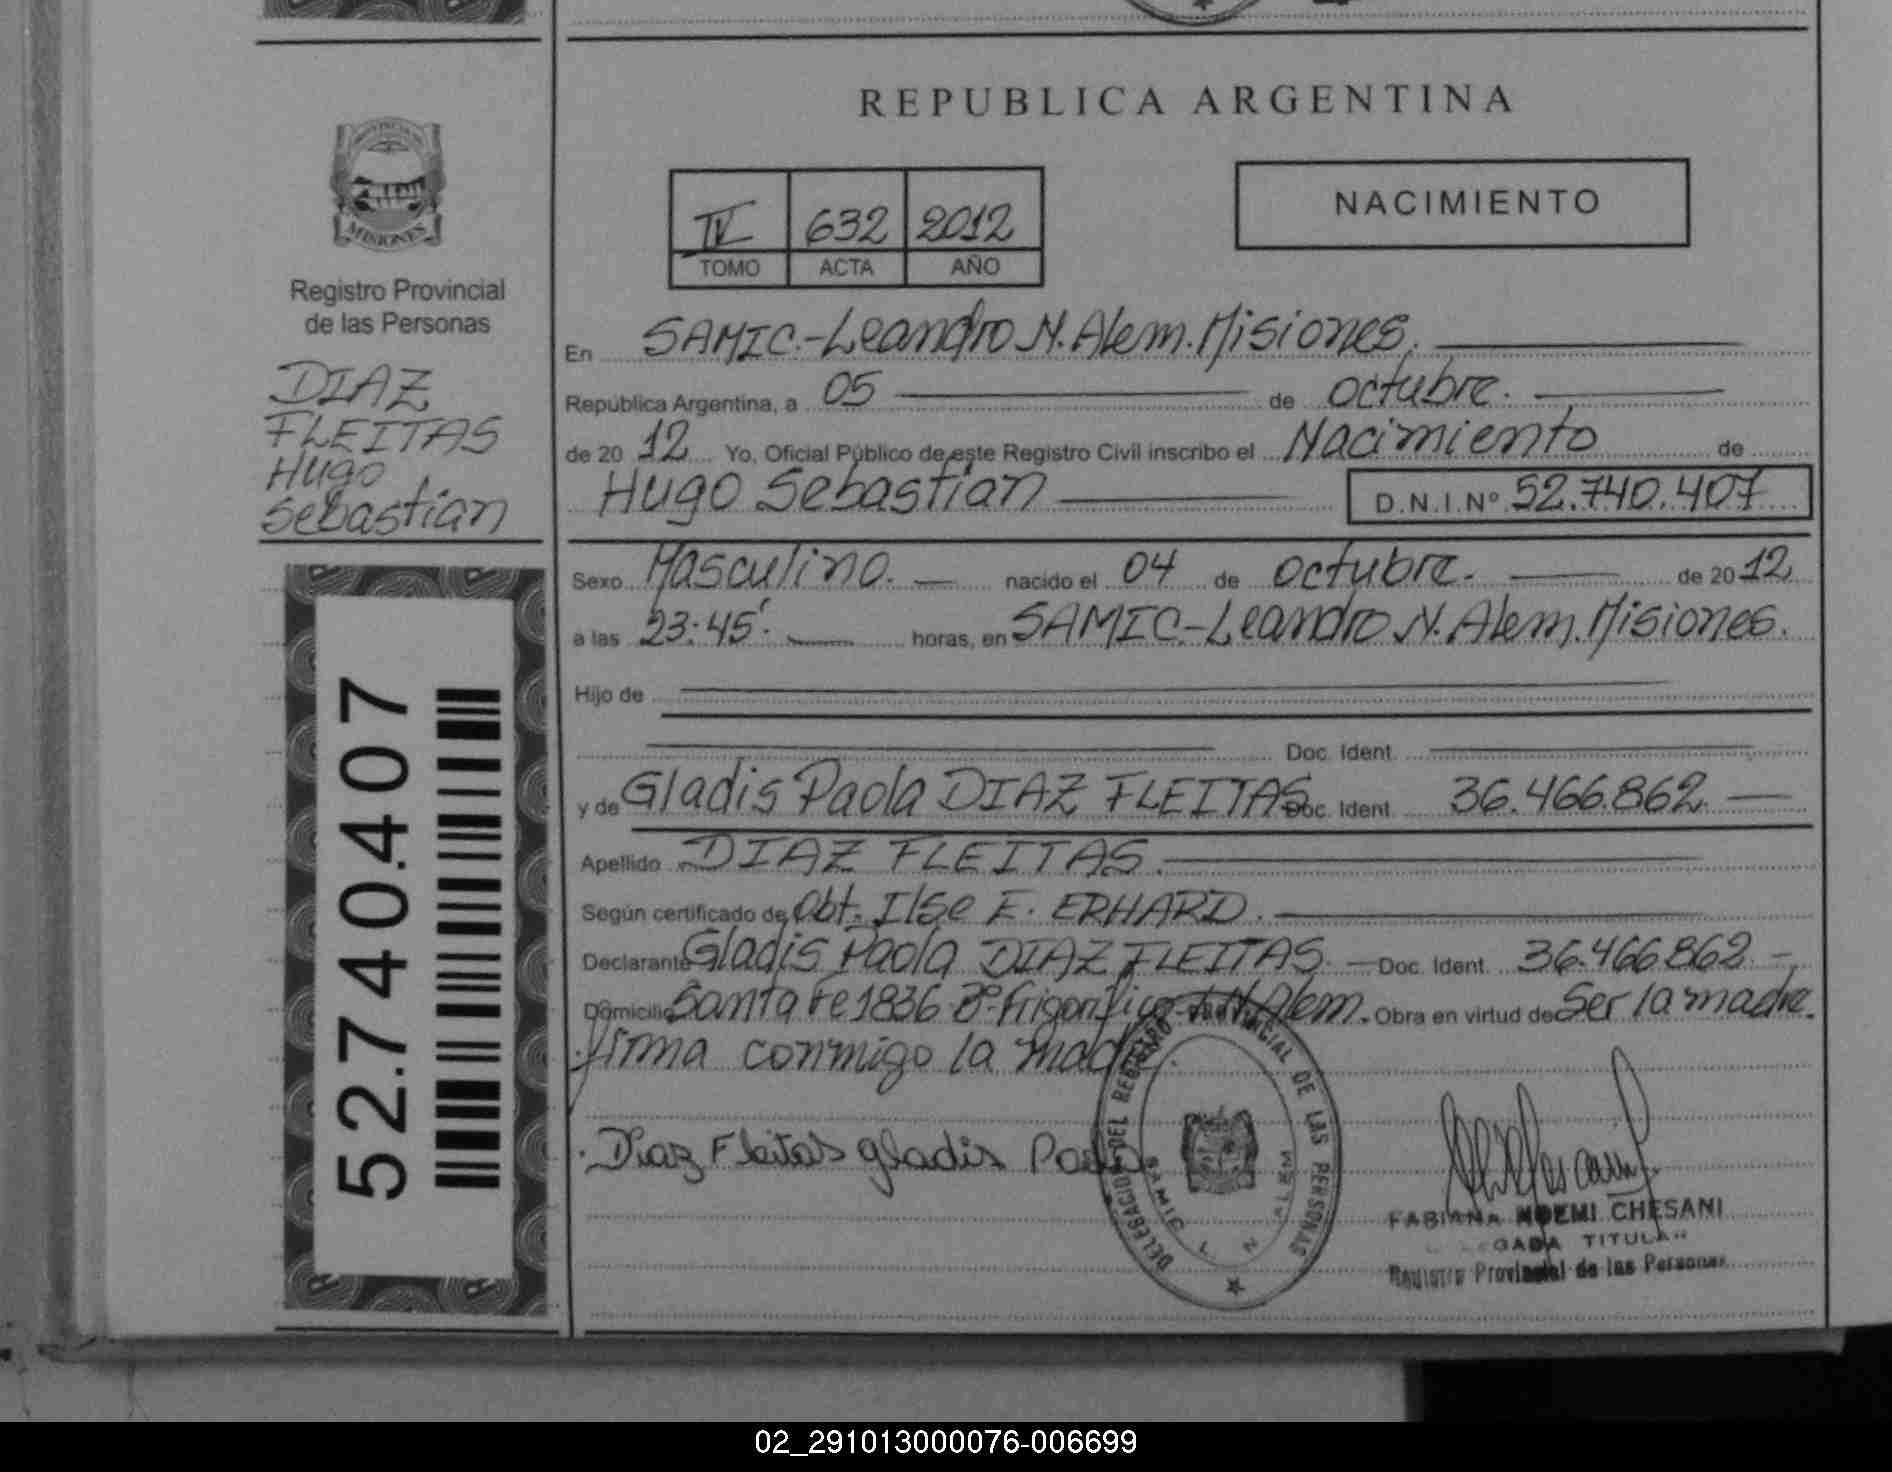 REPUBLICA ARGENTINA
PROVINCIA DE
MISIONES
Registro Provincial
de las Personas
DIAZ
FLEITAS
Hugo
Sebastian
52.740.407
NACIMIENTO
IV 632 2012
TOMO ACTA AÑO
En SAMIC.-Leandro N. Alem. Misiones.
República Argentina, a 05 de octubre.
de 20 12 Yo, Oficial Público de este Registro Civil inscribo el Nacimiento de
Hugo Sebastian D.N.I.Nº 52.740.407
Sexo Masculino. nacido el 04 de octubre. de 20 12
a las 23:45'. horas, en SAMIC.-Leandro N. Alem. Misiones.
Hijo de
Doc. Ident.
y de Gladis Paola DIAZ FLEITAS Doc. Ident. 36.466.862.
Apellido DIAZ FLEITAS.
Según certificado de Obt. Ilse E. ERHARD.
Declarante Gladis Paola DIAZ FLEITAS. Doc. Ident. 36.466862.-
Domicilio Santa Fe 1836 Bº Frigorifico L.N.Alem. Obra en virtud de Ser la madre.
firma conmigo la madre.
Diaz Fleitas gladis Paola
DELEGACION DEL REGISTRO PROVINCIAL DE LAS PERSONAS
SAMIC L. N. ALEM
FABIANA NOEMI CHESANI
DELEGADA TITULAR
Registro Provincial de las Personas
02_291013000076-006699